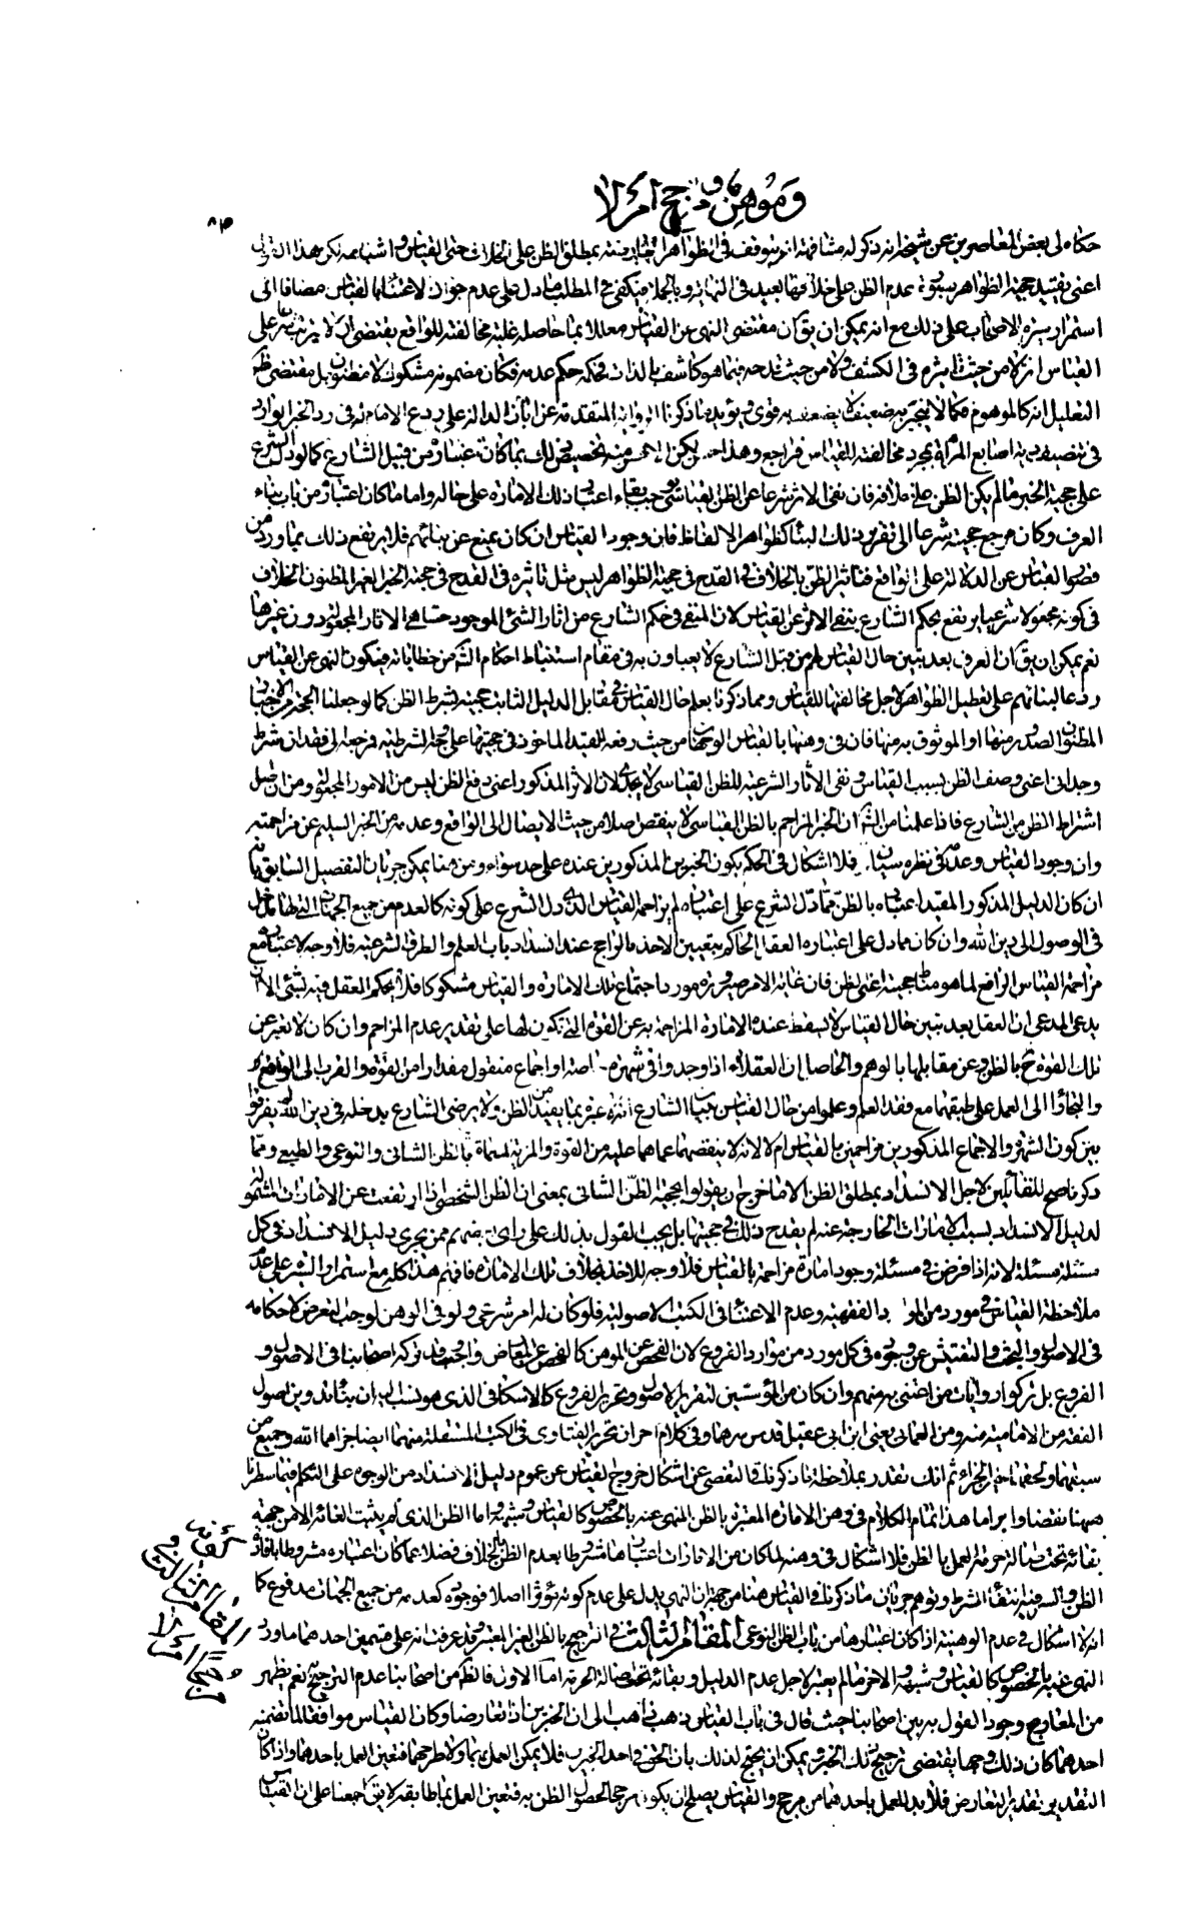 حكاه لى بعض المعاصرين عن شيخه انه ذكر له مشافهة انه يتوقف فى الظواهر المعارضة بمطلق الظن على الخلاف حتى القياس واشباهه لكن هذا القول
اعنى تقييد حجية الظواهر بصورة عدم الظن على خلافها بعيد فى الغاية وبالجملة فيكفى فى المطلب ما دل على عدم جواز الاعتناء بالقياس مضافا الى
استمرار سيرة الاصحاب على ذلك مع انه يمكن ان يق ان مقتضى النهى عن القياس معللا بما حاصله غلبة مخالفته للواقع يقتضى ان لا يترتب على
القياس اثر لا من حيث تاثيره فى الكشف ولا من حيث قدحه فيما هو كاشف بالذات فحكمه حكم عدمه فكان مضمونه مشكوك لا مظنون بل مقتضى ظ
التعليل انه كالموهوم فكما لا ينجبر به ضعيف لا يضعف به قوى ويؤيد ما ذكرنا الرواية المتقدمة عن ابان الدالة على ردع الامام له فى رد الخبر الوارد
فى تنصيف دية اصابع المراة بمجرد مخالفته للقياس فراجع وهذا حسن لكن الاحسن منه تخصيص ذلك بما كان اعتباره من قبل الشارع كما لو دل الشرع
على حجية الخبر ما لم يكن الظن على خلافه فان نفى الاثر شرعا عن الظن القياسى يوجب بقاء اعتبار تلك الامارة على حاله واما ما كان اعتباره من باب بناء
العرف وكان مرجع حجيته شرعا الى تقرير ذلك البناء كظواهر الالفاظ فان وجود القياس ان كان يمنع عن بنائهم فلا يرتفع ذلك بما ورد من
قصور القياس عن الدلالة على الواقع فتاثير الظن بالخلاف فى القدح فى حجية الظواهر ليس مثل تاثيره فى القدح فى حجية الخبر الغير المظنون الخلاف
فى كونه مجعولا شرعيا يرتفع بحكم الشارع بنفى الاثر عن القياس لان المنفى فى حكم الشارع من اثار الشئ الموجود حسا هى الاثار المجعولة دون غيرها
نعم يمكن ان يق ان العرف بعد تبين حال القياس لهم من قبل الشارع لا يعباون به فى مقام استنباط احكام الشارع من خطاباته فيكون النهى عن القياس
ردعا لبنائهم على تعطيل الظواهر لاجل مخالفتها للقياس ومما ذكرنا يعلم حال القياس فى مقابل الدليل الثابت حجيته بشرط الظن كما لو جعلنا الحجة من الاخبار
المظنون الصدور منها او الموثوق به منها فان فى وهنها بالقياس الوجهان من حيث رفعه للقيد الماخوذ فى حجيتها على وجه الشرطية فمرجعه الى فقدان شرط
وجدانى اعنى وصف الظن بسبب القياس ونفى الاثار الشرعية للظن القياسى لا يجدى لان الاثر المذكور اعنى رفع الظن ليس من الامور المجعولة ومن ان اصل
اشتراط الظن من الشارع فاذا علمنا من الشارع ان الخبر المزاحم بالظن القياسى لا ينقص اصلا من حيث الايصال الى الواقع وعدمه من الخبر السليم عن مزاحمته
وان وجود القياس وعدمه فى نظره سيان فلا اشكال فى الحكم بكون الخبرين المذكورين عنده على حد سواء ومن هنا يمكن جريان التفصيل السابق بانه
ان كان الدليل المذكور المقيد اعتباره بالظن مما دل الشرع على اعتباره لم يزاحمه القياس الذى دل الشرع على كونه كالعدم من جميع الجهات التى لها مدخل
فى الوصول الى دين الله وان كان مما دل على اعتباره العقل الحاكم بتعيين الاخذ بالراجح عند انسداد باب العلم والطرق الشرعية فلا وجه لاعتباره مع
مزاحمة القياس الرافع لما هو مناط حجيته اعنى الظن فان غاية الامر صيرورة مورد اجتماع تلك الامارة والقياس مشكوكا فلا يحكم العقل فيه بشئ الا ان
يدعى المدعى ان العقل بعد تبين حال القياس لا يسقط عنده الامارة المزاحمة به عن القوة التى تكون لها على تقدير عدم المزاحم وان كان لا يعبر عن
تلك القوة ح بالظن وعن مقابلها بالوهم والحاصل ان العقلاء اذا وجدوا فى شهرة خاصة او اجماع منقول مقدارا من القوة والقرب الى الواقع
والتجاؤا الى العمل على طبقهما مع فقد العلم وعلموا من حال القياس ببيان الشارع انه لا عبرة بما يفيد من الظن ولا يرضى الشارع بدخله فى دين الله لم يفرقوا
بين كون الشهرة والاجماع المذكورين مزاحمين بالقياس ام لا لانه لا ينقصهما عما هما عليه من القوة والمزية المسماة بالظن الشانى والنوعى والطبعى ومما
ذكرنا صح للقائلين لاجل الانسداد بمطلق الظن الا ما خرج ان يقولوا بحجية الظن الشانى بمعنى ان الظن الشخصى اذا ارتفعت عن الامارات المشمولة
لدليل الانسداد بسبب الامارات الخارجة عنه لم يقدح ذلك فى حجيتها بل يجب القول بذلك على راى بعضهم ممن يجرى دليل الانسداد فى كل
مسئلة مسئلة لانه اذا فرض فى مسئلة وجود امارة مزاحمة بالقياس فلا وجه للاخذ بخلاف تلك الامارة فافهم هذا كله مع استمرار السيرة على عدم
ملاحظة القياس فى مورد من الموارد الفقهية وعدم الاعتناء به فى الكتب الاصولية فلو كان له اثر شرعى ولو فى الوهن لوجب التعرض لاحكامه
فى الاصول والبحث والتفتيش عن وجوده فى كل مورد من موارد الفروع لان الفحص عن الموهن كالفحص عن المعارض واجب وقد تركه اصحابنا فى الاصول و
الفروع بل تركوا روايات من اعتنى به منهم وان كان من المؤسسين لتقرير الاصول وتحرير الفروع كالاسكافى الذى هو نسب اليه ان بناء تدوين اصول
الفقه من الامامية منه ومن العمانى يعنى ابن ابى عقيل قدس سرهما وفى كلام اخر ان تحرير الفتاوى فى الكتب المستقلة منهما ايضا جزاهما الله وجميع من
سبقهما ولحقهما خير الجزاء ثم انك تقدر بملاحظة ما ذكرنا فى التفصى عن اشكال خروج القياس عن عموم دليل الانسداد من الوجوه على التكلم فيما سطرنا
ههنا نقضا وابراما هذا تمام الكلام فى وهن الامارة المعتبرة بالظن المنهى عنه بالخصوص كالقياس وشبهه واما الظن الذى لم يثبت الغائه الا من جهة
بقائه تحت اصالة حرمة العمل بالظن فلا اشكال فى وهنه لما كان من الامارات اعتبارها مشروطا بعدم الظن بالخلاف فضلا عما كان اعتباره مشروطا بافادة
الظن والسر فيه انتفاء الشرط وتوهم جريان ما ذكرنا فى القياس هنا من جهة ان النهى يدل على عدم كونه مؤثرا اصلا فوجوده كعدمه من جميع الجهات مدفوع كما
انه لا اشكال فى عدم الوهنية اذا كان اعتبارها من باب الظن النوعى المقام الثالث فى الترجيح بالظن الغير المعتبر وقد عرفت انه على قسمين احدهما ما ورد
النهى عنه بالخصوص كالقياس وشبهه والاخر ما لم يعتبر لاجل عدم الدليل وبقائه تحت اصالة الحرمة اما الاول فالظ من اصحابنا عدم الترجيح به نعم يظهر
من المعارج وجود القول به بين اصحابنا حيث قال فى باب القياس ذهب ذاهب الى ان الخبرين اذا تعارضا وكان القياس موافقا لما تضمنه
احدهما كان ذلك وجها يقتضى ترجيح ذلك الخبر ويمكن ان يحتج لذلك بان الحق فى احد الخبرين فلا يمكن العمل بهما ولا طرحهما فتعين العمل باحدهما واذا كان
التقدير تقدير التعارض فلا بد للعمل باحدهما من مرجح والقياس يصلح ان يكون مرجحا لحصول الظن به فتعين العمل بما طابقه لا يق اجمعنا على ان القياس
المقام الثالث